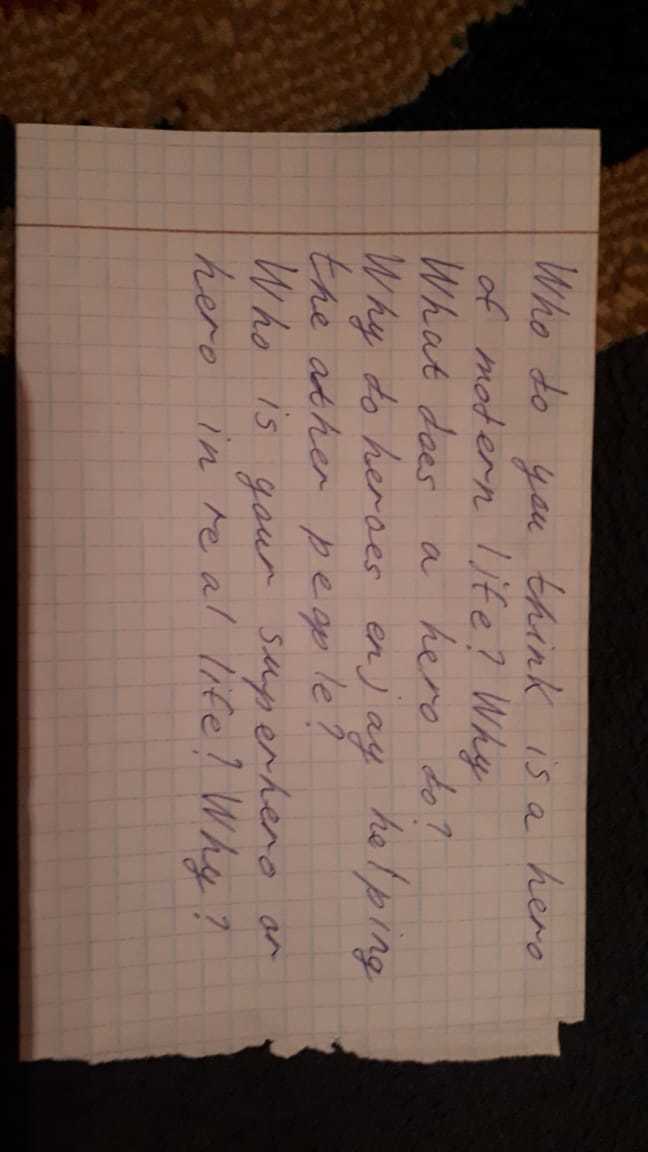 Who do you think is a hero
of modern life? Why
What does a hero do?
Why do heroes enjay helping
the other people?
Who is your superhero or
hero in real life? Why?